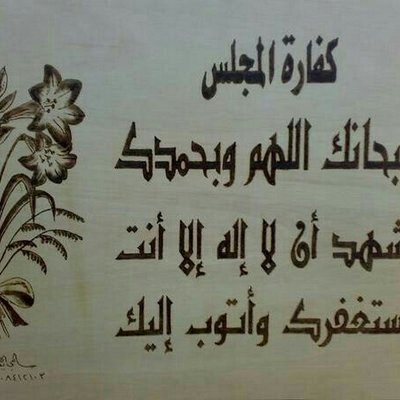 كفارة المجلس
بحانك اللهم وبحمدك
شهد أن لا إله إلا أنت
ستغفرك وأتوب إليك